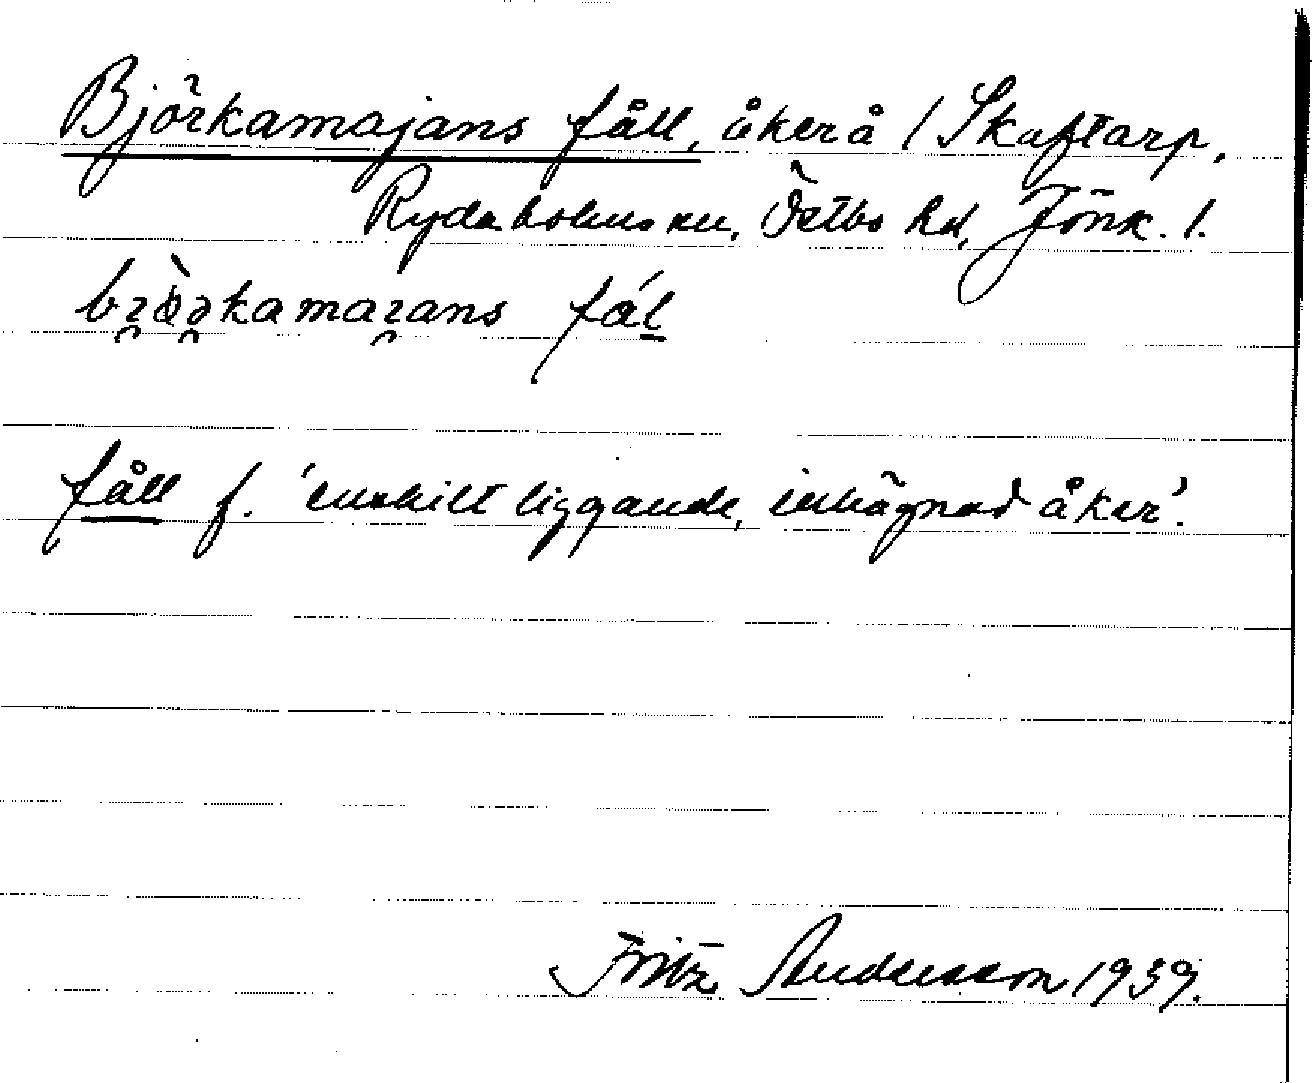 Björkamajans fåll, åker å / Skaftarp,
Rydaholms sn, Östbo hd, Jönk. l.
fål
fåll f. 'enskilt liggande, inhägnad åker'.
Fritz Andersson 1939.